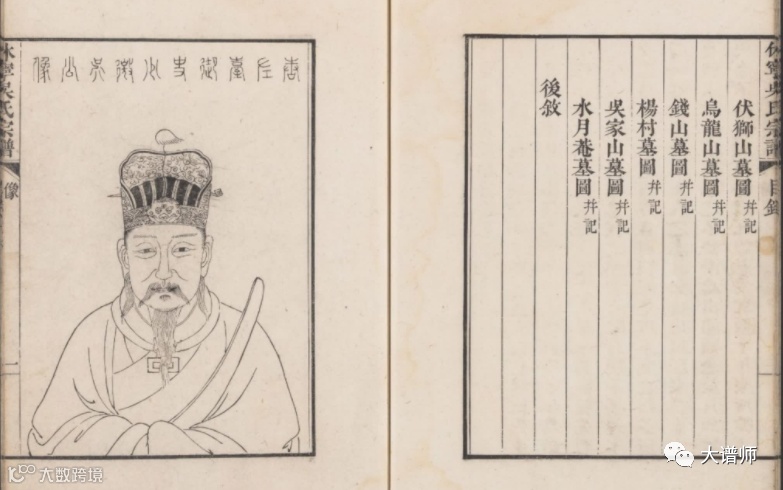 休寧吳氏宗譜 目錄
伏獅山墓圖 并記
烏龍山墓圖 并記
錢山墓圖 并記
楊村墓圖 并記
吳家山墓圖 并記
水月菴墓圖 并記
後敘
唐左臺御史少微吳公像
休寧吳氏宗譜 像 一
大谱师
大数跨境